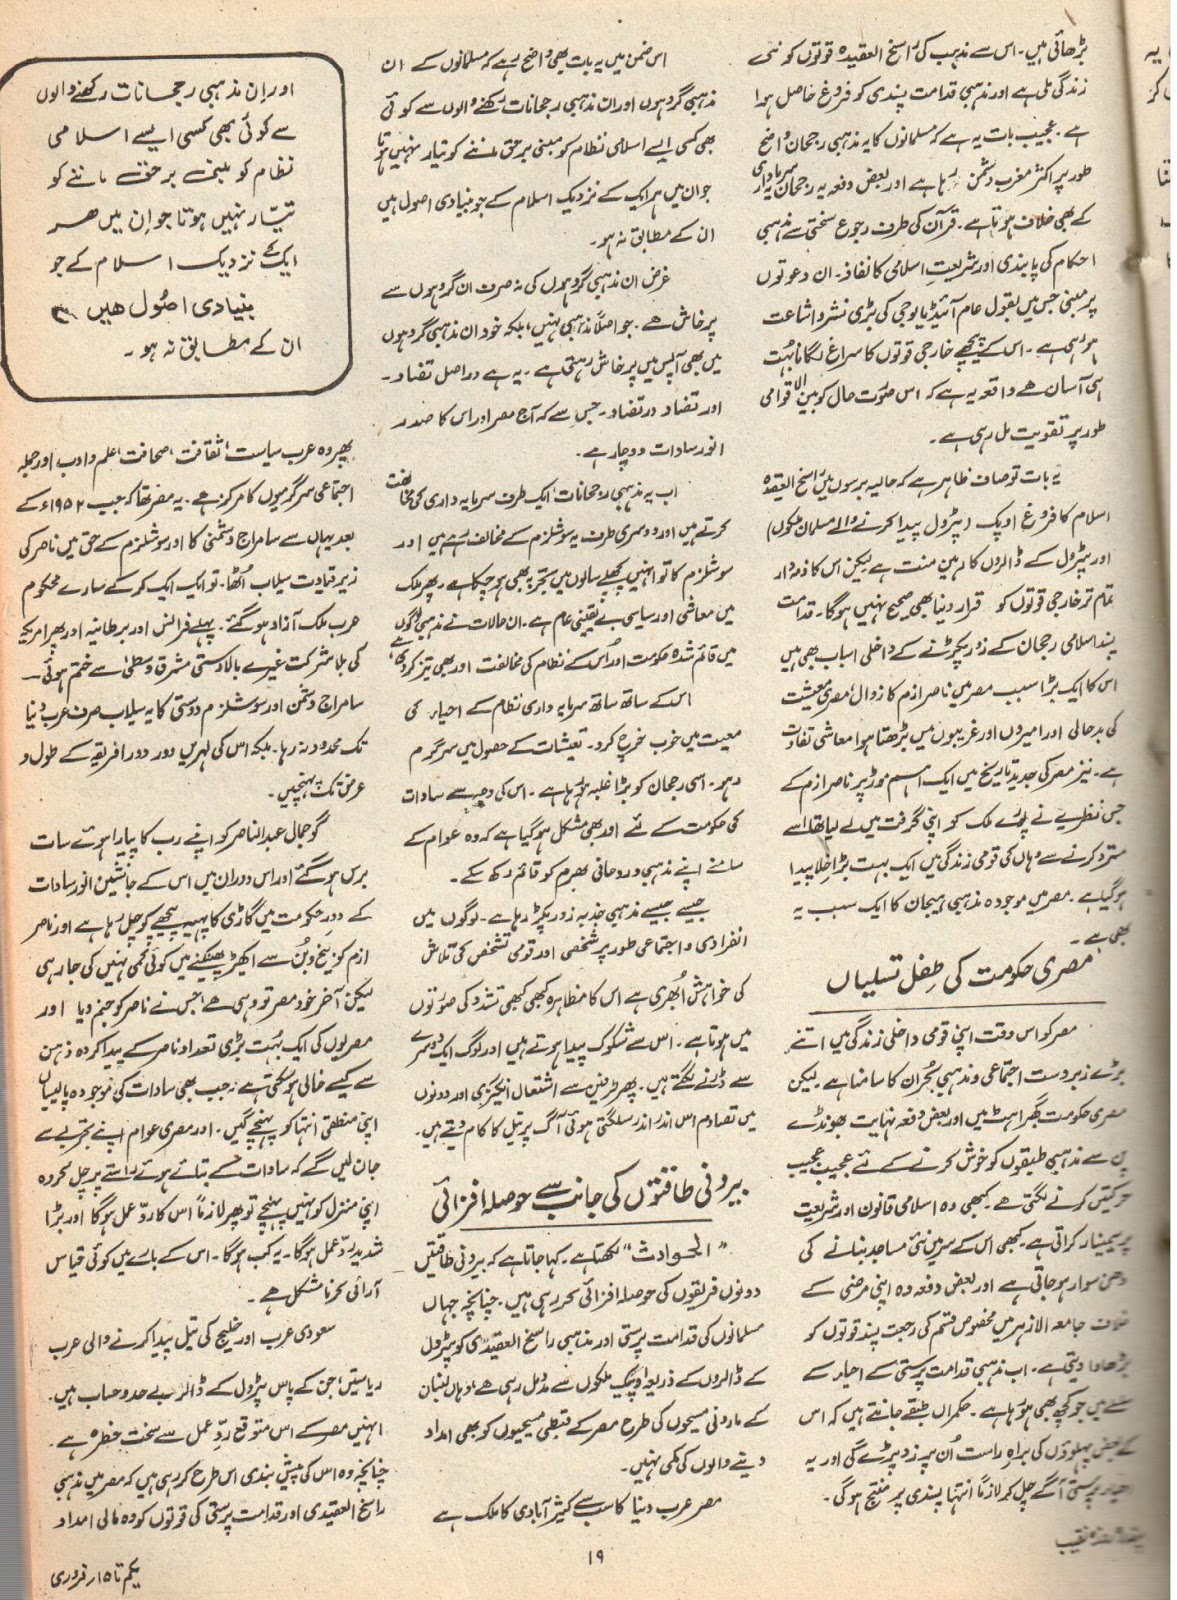 بڑھائی ہیں۔ اس سے مذہب کی راسخ العقیدہ قوتوں کو نئی
زندگی ملی ہے اور مذہبی قدامت پسندی کو فروغ حاصل ہوا
ہے۔ عجیب بات یہ ہے کہ مسلمانوں کا یہ مذہبی رجحان واضح
طور پر اکثر مغرب دشمن رہا ہے اور بعض دفعہ یہ رجحان سرمایہ داری
کے بھی خلاف ہوتا ہے۔ قرآن کی طرف رجوع سختی سے مذہبی
احکام کی پابندی اور شریعتِ اسلامی کا نفاذ۔ ان دعوتوں
پر مبنی جس میں بقول عام آئیڈیالوجی کی بڑی نشر و اشاعت
ہو رہی ہے۔ اس کے پیچھے خارجی قوتوں کا سراغ لگانا بہت
ہی آسان ہے واقعہ یہ ہے کہ اس صورت حال کو بین الاقوامی
طور پر تقویت مل رہی ہے۔
یہ بات تو صاف ظاہر ہے کہ حالیہ برسوں میں راسخ العقیدہ
اسلام کا فروغ اوپک (پٹرول پیدا کرنے والے مسلمان ملکوں)
اور پٹرول کے ڈالروں کا رہین منت ہے لیکن اس کا ذمہ دار
تمام تر خارجی قوتوں کو قرار دینا بھی صحیح نہیں ہوگا۔ قدامت
پسند اسلامی رجحان کے زور پکڑنے کے داخلی اسباب بھی ہیں
اس کا ایک بڑا سبب مصر میں ناصر ازم کا زوال، مصری معیشت
کی بدحالی اور امیروں اور غریبوں میں بڑھتا ہوا معاشی تفاوت
ہے۔ نیز مصر کی جدید تاریخ میں ایک اہم موڑ پر ناصر ازم کے
جس نظریے نے پورے ملک کو اپنی گرفت میں لے لیا تھا اسے
مسترد کرنے سے وہاں کی قومی زندگی میں ایک بہت بڑا خلا پیدا
ہو گیا ہے۔ مصر میں موجودہ مذہبی ہیجان کا ایک سبب یہ
بھی ہے۔
مصری حکومت کی طفل تسلیاں
مصر کو اس وقت اپنی قومی داخلی زندگی میں اتنے
بڑے زبردست اجتماعی و مذہبی بحران کا سامنا ہے۔ لیکن
مصری حکومت گھبراہٹ میں اور بعض دفعہ نہایت بھونڈے
پن سے مذہبی طبقوں کو خوش کرنے کے لئے عجیب عجیب
حرکتیں کرنے لگتی ہے۔ کبھی وہ اسلامی قانون اور شریعت
پر سیمینار کراتی ہے۔ کبھی اس کے سر میں نئی مساجد بنانے کی
دھن سوار ہو جاتی ہے اور بعض دفعہ وہ اپنی مرضی کے
خلاف جامعہ الازہر میں مخصوص قسم کی رجعت پسند قوتوں کو
بڑھاوا دیتی ہے۔ اب مذہبی قدامت پرستی کے احیار کے
سلسلے میں جو کچھ بھی ہو رہا ہے۔ حکمراں طبقے جانتے ہیں کہ اس
کے بعض پہلوؤں کی براہ راست اُن پر زد پڑے گی اور یہ
احیاء پرستی آگے چل کر لازماً انتہا پسندی پر منتج ہوگی۔
اس ضمن میں یہ بات بھی واضح رہے کہ مسلمانوں کے ان
مذہبی گروہوں اور ان مذہبی رجحانات رکھنے والوں سے کوئی
بھی کسی ایسے اسلامی نظام کو مبنی بر حق ماننے کو تیار نہیں ہوتا
جو ان میں ہر ایک کے نزدیک اسلام کے جو بنیادی اصول ہیں
ان کے مطابق نہ ہو۔
غرض ان مذہبی گروہوں کی نہ صرف ان گروہوں سے
پرخاش ہے۔ جو اصلاً مذہبی نہیں، بلکہ خود ان مذہبی گروہوں
میں بھی آپس میں پرخاش رہتی ہے۔ یہ ہے دراصل تضاد۔
اور تضاد در تضاد۔ جس سے کہ آج مصر اور اس کا صدر
انور سادات دوچار ہے۔
اب یہ مذہبی رجحانات، ایک طرف سرمایہ داری کی مخالفت
کرتے ہیں اور دوسری طرف یہ سوشلزم کے مخالف رہے ہیں اور
سوشلزم کا تو انہیں پچھلے سالوں میں تجربہ بھی ہو چکا ہے۔ پھر ملک
میں معاشی اور سیاسی بے یقینی عام ہے۔ ان حالات نے مذہبی لوگوں
میں قائم شدہ حکومت اور اُس کے نظام کی مخالفت اور بھی تیز کر دی ہے
اس کے ساتھ ساتھ سرمایہ داری نظام کے احیار کی
معیت میں خوب خرچ کرو۔ تعیشات کے حصول میں سرگرم
رہو۔ اسی رجحان کو بڑا غلبہ ہو رہا ہے۔ اس کی وجہ سے سادات
کی حکومت کے لئے اور بھی مشکل ہو گیا ہے کہ وہ عوام کے
سامنے اپنے مذہبی و روحانی بھرم کو قائم رکھ سکے۔
جیسے جیسے مذہبی جذبہ زور پکڑ رہا ہے۔ لوگوں میں
انفرادی و اجتماعی طور پر شخصی اور قومی تشخص کی تلاش
کی خواہش ابھری ہے اس کا مظاہرہ کبھی کبھی تشدد کی صورتوں
میں ہوتا ہے۔ اس سے شکوک پیدا ہوتے ہیں اور لوگ ایک دوسرے
سے ڈرنے لگتے ہیں۔ پھر طرفین سے اشتعال انگیزی اور دونوں
میں تصادم اس اندر اندر سلگتی ہوئی آگ پر تیل کا کام دیتے ہیں۔
بیرونی طاقتوں کی جانب سے حوصلہ افزائی
"الحوادث" لکھتا ہے۔ کہا جاتا ہے کہ بیرونی طاقتیں
دونوں فریقوں کی حوصلہ افزائی کر رہی ہیں۔ چنانچہ جہاں
مسلمانوں کی قدامت پرستی اور مذہبی راسخ العقیدگی کو پٹرول
کے ڈالروں کے ذریعہ اوپیک ملکوں سے مدد مل رہی ہے، وہاں لبنان
کے مارونی مسیحوں کی طرح مصر کے قبطی مسیحیوں کو بھی امداد
دینے والوں کی کمی نہیں۔
مصر عرب دنیا کا سب سے کثیر آبادی کا ملک ہے
اور اِن مذہبی رجحانات رکھنے والوں
سے کوئی بھی کسی ایسے اسلامی
نظام کو مبنی بر حق ماننے کو
تیار نہیں ہوتا جو اِن میں ھر
ایک کے نزدیک اسلام کے جو
بنیادی اصُول ھیں
ان کے مطابق نہ ہو۔
پھر وہ عرب سیاست، ثقافت، صحافت، علم و ادب اور جملہ
اجتماعی سرگرمیوں کا مرکز ہے۔ یہ مصر تھا کہ جب ۱۹۵۲ء کے
بعد یہاں سے سامراج دشمنی کا اور سوشلزم کے حق میں ناصر کی
زیر قیادت سیلاب اُٹھا۔ تو ایک ایک کر کے سارے محکوم
عرب ملک آزاد ہو گئے۔ پہلے فرانس اور برطانیہ اور پھر امریکہ
کی بلا شرکت غیرے بالادستی مشرق وسطیٰ سے ختم ہوئی۔
سامراج دشمن اور سوشلزم دوستی کا یہ سیلاب صرف عرب دنیا
تک محدود نہ رہا۔ بلکہ اس کی لہریں دور دور افریقے کے طول و
عرض تک پہنچیں۔
گو جمال عبدالناصر کو اپنے رب کا پیارا ہوئے سات
برس ہو گئے اور اس دوران میں اس کے جانشین انور سادات
کے دورِ حکومت میں گاڑی کا پہیہ پیچھے کو چل رہا ہے اور ناصر
ازم کو بیخ و بُن سے اکھیڑ پھینکنے میں کوئی کمی نہیں کی جا رہی
لیکن آخر خود مصر تو وہی ہے جس نے ناصر کو جنم دیا اور
مصریوں کی ایک بہت بڑی تعداد ناصر کے پیدا کردہ ذہن
سے کیسے خالی ہو سکتی ہے؟ جب بھی سادات کی موجودہ پالیسیاں
اپنی منطقی انتہا کو پہنچے گیں۔ اور مصری عوام اپنے تجربے سے
جان لیں گے کہ سادات کے بتائے ہوئے راستے پر چل کر وہ
اپنی منزل کو نہیں پہنچے تو پھر لازماً اس کا ردّ عمل ہوگا اور بڑا
شدید ردّ عمل ہوگا۔ یہ کب ہوگا۔ اس کے بارے میں کوئی قیاس
آرائی کرنا مشکل ہے۔
سعودی عرب اور خلیج کی تیل پیدا کرنے والی عرب
ریاستیں، جن کے پاس پٹرول کے ڈالر بے حد و حساب ہیں۔
انہیں مصر کے اس متوقع ردِّ عمل سے سخت خطرہ ہے۔
چنانچہ وہ اس کی پیش بندی اس طرح کر رہی ہیں کہ مصر میں مذہبی
راسخ العقیدی اور قدامت پرستی کی قوتوں کو وہ مالی امداد
نقیب
۱۹
یکم تا ۱۵ر فروری